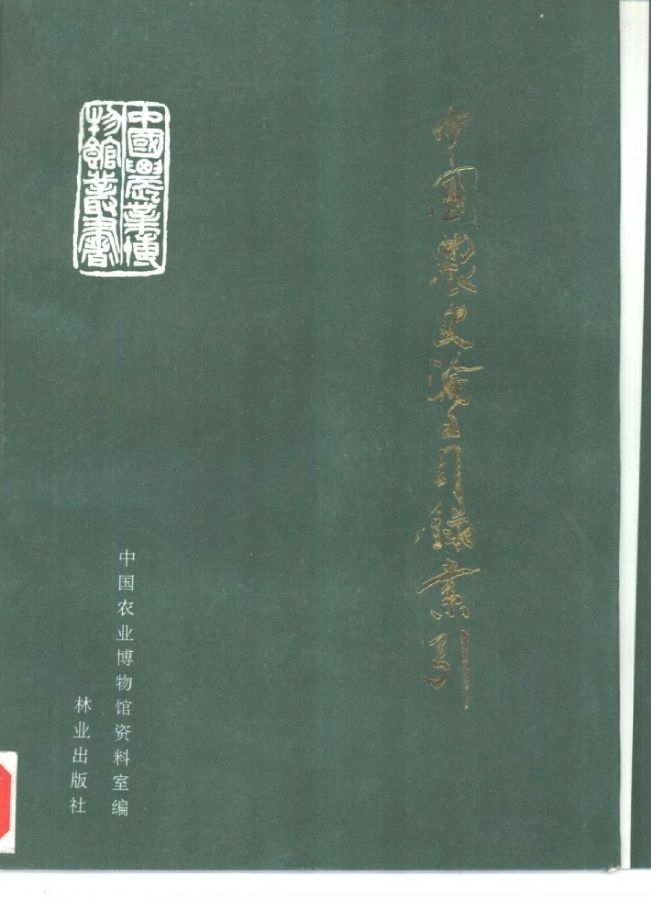 中国農史論文目録索引
中國農業博
物館叢書
中国农业博物馆资料室编
林业出版社